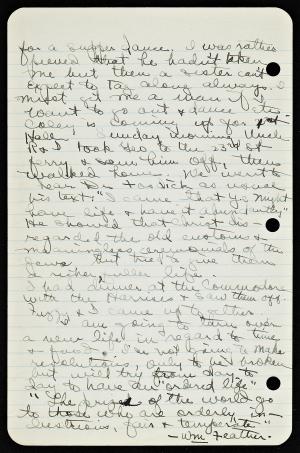 for a supper dance. I was rather
peeved that he hadn't taken
me but then a sister can't
expect to tag along always. I
must get me a man if I
want to go out & dance etc.
Coley is coming up for
Sunday morning Uncle
R & I took Geo to the 23rd st
ferry & saw him off, then
walked home. We went to
hear Dr. Fosdick as usual
his text; "I came that ye might
have life & have it abundantly."
He showed that Christ dis-
regarded the old customs &
meaningless ceremonials of the
Jews but tried to give them
a richer, fuller life.
I had dinner at the Commodore
with the Herricks & saw them off.
Fuzzy & I came up together.
I am going to turn over
a new life in regard to time
& food. I'm not going to make
resolutions, only to be broken
but will try from day to
day to have an "ordered life"
"The prizes of the world go
to those who are orderly, in-
dustrious, fair & temperate"
-Wm Feather.